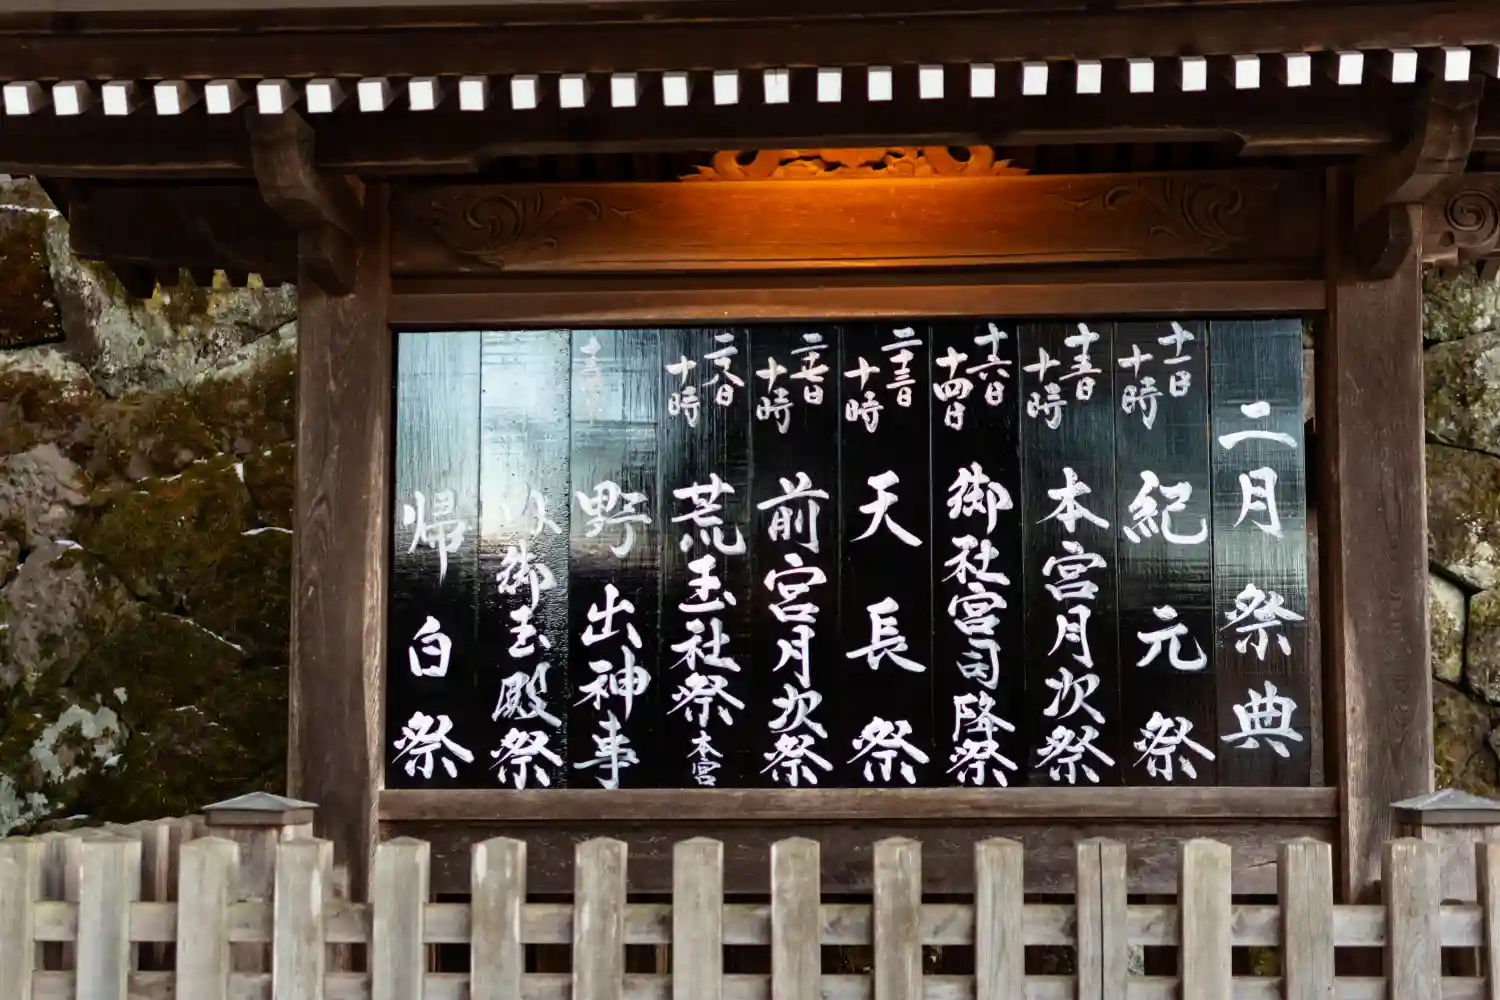 二月祭典
十一日
十時
紀元祭
十五日
十時
本宮月次祭
十六日
十四日
御社宮司降祭
二十三日
十時
天長祭
二十七日
十時
前宮月次祭
二十八日
十時
荒玉社祭 本宮
野出神事
御玉殿祭
帰白祭